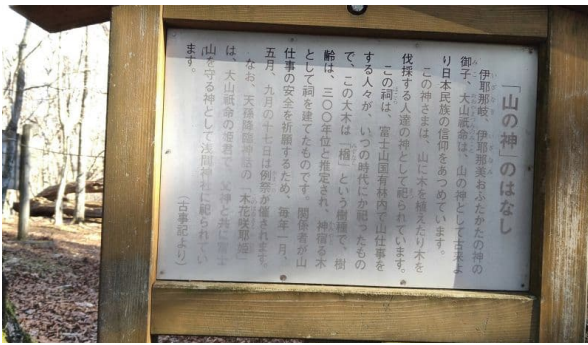 「山の神」のはなし
伊耶那岐、伊耶那美おふたかたの神の
御子、大山祇命は、山の神として古来よ
り日本民族の信仰をあつめています。
この神さまは、山に木を植えたり木を
伐採する人達の神として祀られています。
この祠は、富士山国有林内で山仕事を
する人々が、いつの時代にか祀ったもの
で、この大木は「栂」という樹種で、樹
齢は、三〇〇年位と推定され、神宿る木
として祠を建てたものです。関係者が山
仕事の安全を祈願するため、毎年一月、
五月、九月の十七日は例祭が催されます。
なお、天孫降臨神話の「木花咲耶姫」
は、大山祇命の姫君で、父神と共に富士
山を守る神として浅間神社に祀られてい
ます。
（古事記より）